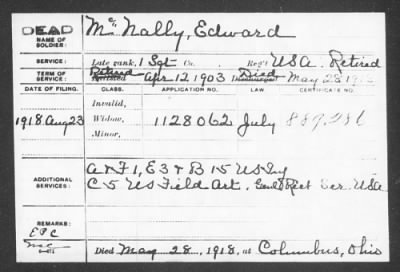 DEAD McNally, Edward
NAME OF SOLDIER:
SERVICE: Late rank, 1 Sgt Co. Reg't USA. Retired
TERM OF SERVICE: Retired Apr 12, 1903 Died May 28, 19
DATE OF FILING. CLASS. APPLICATION NO. LAW CERTIFICATE NO.
Invalid,
1918 Aug 23 Widow, 1128062 July 889.286
Minor,
A & F 1, E 3 & B 15 US Inf
ADDITIONAL SERVICES: C 5 US Field Art. Genl Rect Ser. USA
REMARKS:
EPC
Died May 28, 1918, at Columbus, Ohio